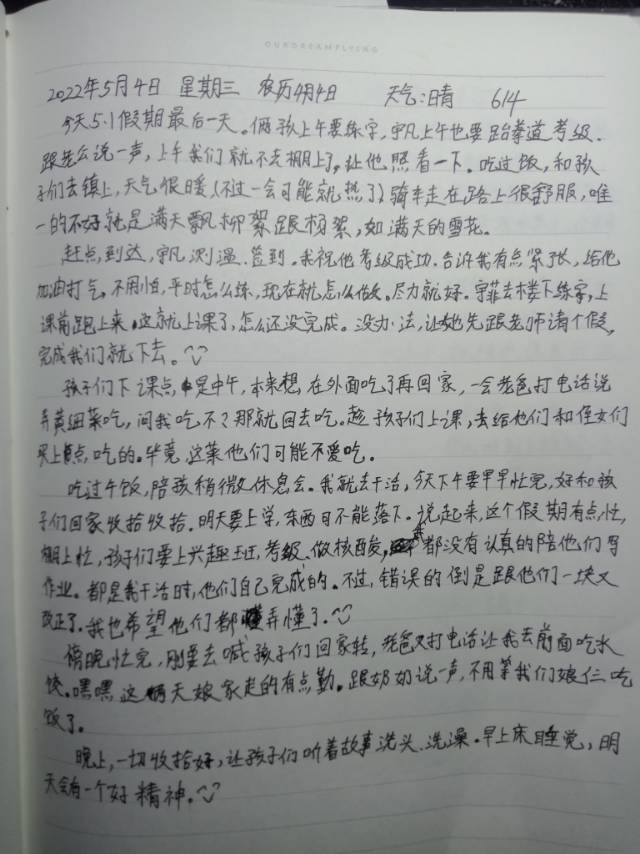 OURDREAMFLYING
2022年5月4日 星期三 农历4月4日 天气:晴 614
今天5.1假期最后一天。俩孩上午要练字,宇凡上午也要跆拳道考级.
跟老公说一声,上午我们就不去棚上了,让他照看一下。吃过饭,和孩
子们去镇上,天气很暖(不过一会可能就热了)骑车走在路上很舒服,唯
一的不好就是满天飘柳絮跟杨絮,如满天的雪花。
赶点,到达,宇凡测温.签到.我祝他考级成功.合许我有点紧张,给他
加油打气,不用怕,平时怎么练,现在就怎么做。尽力就好.宇菲去楼下练字,上
课前跑上来,这就上课了,怎么还没完成。没办法,让她先跟老师请个假,
完成我们就下去。
孩子们下课点,是中午,本来想在外面吃了再回家,一会老爸打电话说
弄黄细菜吃,问我吃不?那就回去吃。趁孩子们上课,去给他们和侄女们
买上点吃的.毕竟这菜他们可能不爱吃.
吃过午饭,陪孩稍微休息会.我就去干活,今天下午要早早忙完,好和孩
子们回家收拾收拾.明天要上学,东西可不能落下.说起来,这个假期有点忙,
棚上忙,孩子们要上兴趣班,考级.做核酸,我都没有认真的陪他们写
作业。都是我干活时,他们自己完成的。不过,错误的倒是跟他们一块又
改正了.我也希望他们都弄懂了.
傍晚忙完,刚要去喊孩子们回家转,老爸又打电话让我去前面吃水
饺.嘿嘿这两天娘家走的有点勤。跟奶奶说一声,不用等我们娘仨吃
饭了。
晚上,一切收拾好,让孩子们听着故事洗头.洗澡.早上床睡觉,明
天会有一个好精神.